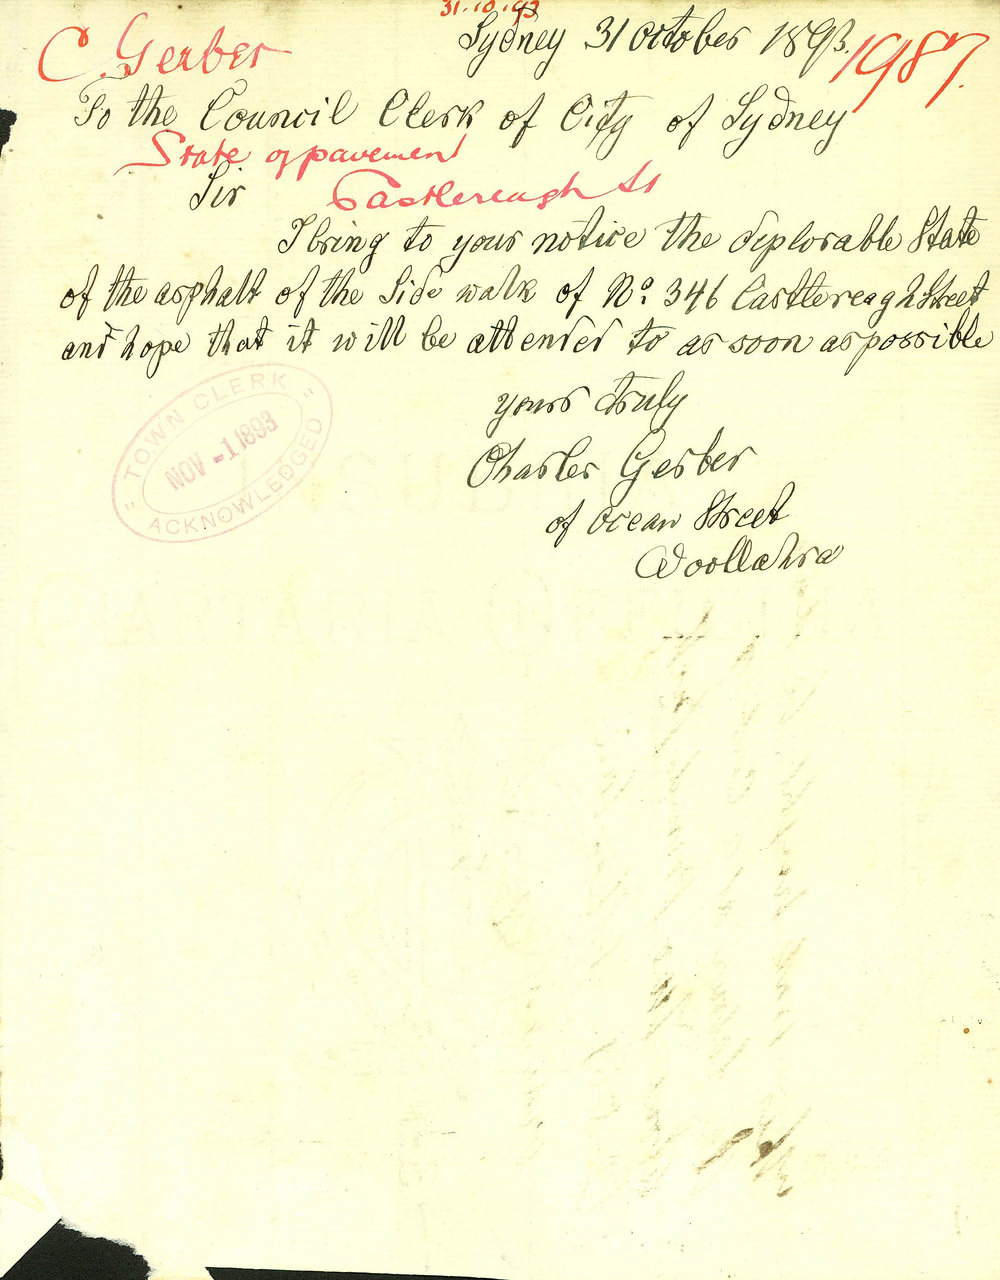 31.10.93
C. Gerber
Sydney 31 october 1893.
1987.
To the Council Clerk of City of Sydney
State of pavement
Sir
Castlereagh St
I bring to your notice the deplorable State
of the asphalt of the Side walk of No. 346 Castlereagh Street
and hope that it will be attended to as soon as possible
yours truly
Charles Gerber
of Ocean Street
Woollahra
"TOWN CLERK"
NOV -1 1893
ACKNOWLEDGED